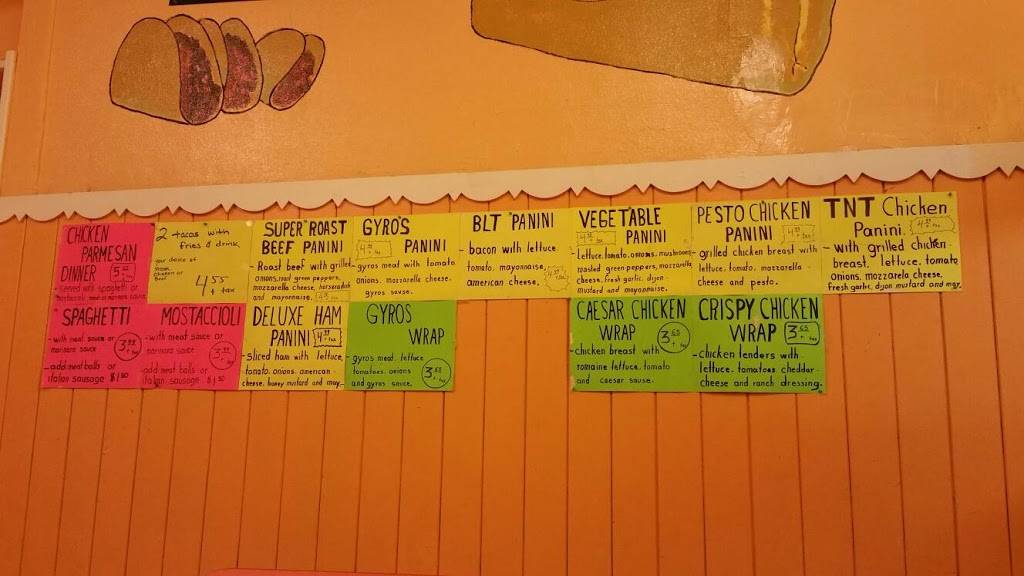 CHICKEN
PARMESAN
DINNER
- served with spaghetti or
2 tacos with
fries & drink
your choice of
steak
chicken or
beef
4.55
+ tax
SUPER ROAST
BEEF PANINI
- Roast beef with grilled
onions, roast green peppers,
mozzarella cheese, horseradish
and mayonnaise.
GYRO'S
PANINI
gyros meat with tomato
onions, mozzarella cheese.
gyros sauce.
BLT PANINI
- bacon with lettuce.
tomato, mayonnaise,
american cheese.
VEGETABLE
PANINI
lettuce, tomato, onions, mushrooms
roasted green peppers, mozzarella
cheese, fresh garlic, dyon
mustard and mayonnaise.
PESTO CHICKEN
PANINI
grilled chicken breast with
lettuce, tomato, mozzarella
cheese and pesto.
TNT Chicken
Panini.
- with grilled chicken
breast, lettuce, tomato
onions, mozzarella cheese,
Fresh garlic, dyon mustard and mayo.
SPAGHETTI
- with meat sauce or
marinara sauce
3.99
+ tax
- add meat balls or
italian sausage $1.50
MOSTACCIOLI
- with meat sauce or
marinara sauce
3.99
+ tax
- add meat balls or
italian sausage $1.50
DELUXE HAM
PANINI
- sliced ham with lettuce,
tomato, onions, american
cheese, honey mustard and mayo
GYROS
WRAP
gyros meat, lettuce
tomatoes, onions
and gyros sauce.
3.65
+ tax
CAESAR CHICKEN
WRAP
3.65
+ tax
- chicken breast with
romaine lettuce, tomato
and caesar sause.
CRISPY CHICKEN
WRAP
3.65
+ tax
- chicken tenders with
lettuce, tomatoes, cheddar
cheese and ranch dressing.